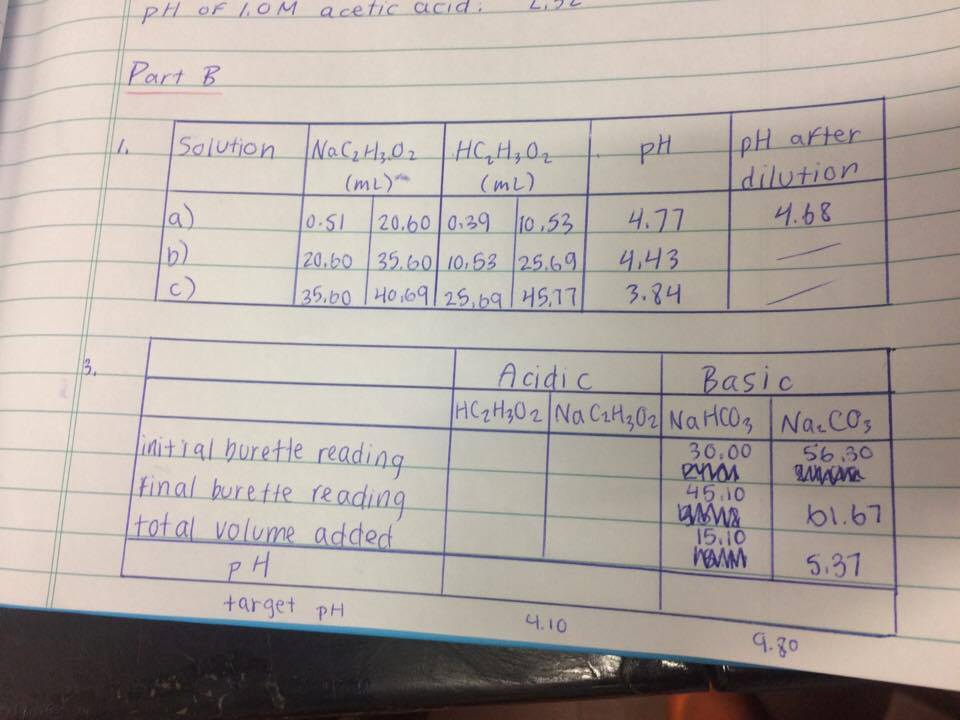 pH of 1.0M acetic acid:
Part B
1. Solution NaC2H3O2 (mL) HC2H3O2 (mL) pH pH after dilution
a) 0.51 20.60 0.39 10.53 4.77 4.68
b) 20.60 35.60 10.53 25.69 4.43
c) 35.60 40.69 25.69 45.77 3.84
3. Acidic Basic
HC2H3O2 NaC2H3O2 NaHCO3 Na2CO3
initial burette reading 30.00 56.30
final burette reading 45.10 61.67
total volume added 15.10 5.37
pH
target pH 4.10 9.80